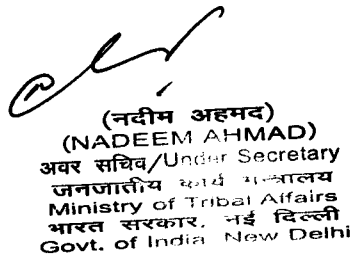 (नदीम अहमद)
(NADEEM AHMAD)
अवर सचिव/Under Secretary
जनजातीय कार्य मन्त्रालय
Ministry of Tribal Affairs
भारत सरकार, नई दिल्ली
Govt. of India New Delhi